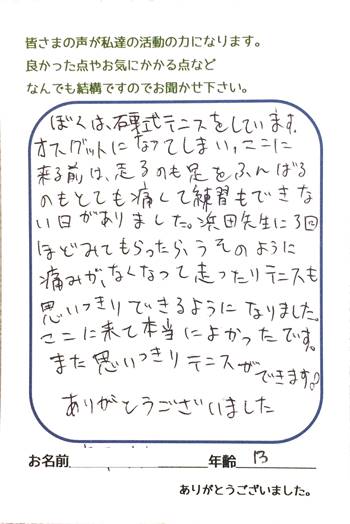 皆さまの声が私達の活動の力になります。
良かった点やお気にかかる点など
なんでも結構ですのでお聞かせ下さい。
ぼくは、硬式テニスをしています。
オスグットになってしまい、ここに
来る前は、走るのも足をふんばる
のもとても痛くて練習もできな
い日がありました。浜田先生に3回
ほどみてもらったら、うそのように
痛みが、なくなって走ったりテニスも
思いっきりできるようになりました。
ここに来て本当によかったです。
また思いっきりテニスができます。
ありがとうございました
お名前 年齢 13
ありがとうございました。